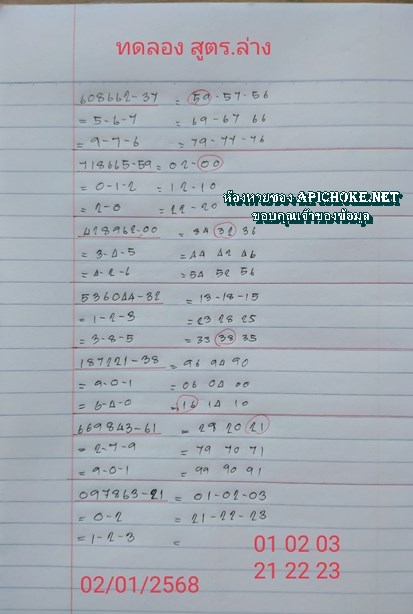 ทดลอง สูตร.ล่าง
608662-37 = 59-57-56
= 5-6-7 = 69-67 66
= 9-7-6 = 79-77-76
718665-59 = 02-00
= 0-1-2 = 12-10
= 2-0 = 22-20
ห้องหวยซอง APICHOKE.NET
ขอบคุณเจ้าของข้อมูล
428962-00 = 34 32 36
= 3-4-5 = 44 42 46
= 4-2-6 = 54 52 56
536044-32 = 13-18-15
= 1-2-3 = 23 28 25
= 3-8-5 = 33 38 35
187221-38 = 96 94 90
= 9-0-1 = 06 04 00
= 6-4-0 = 16 14 10
669843-61 = 29 20 21
= 2-7-9 = 79 70 71
= 9-0-1 = 99 90 91
097863-21 = 01-02-03
= 0-2 = 21-22-23
= 1-2-3 =
01 02 03
21 22 23
02/01/2568